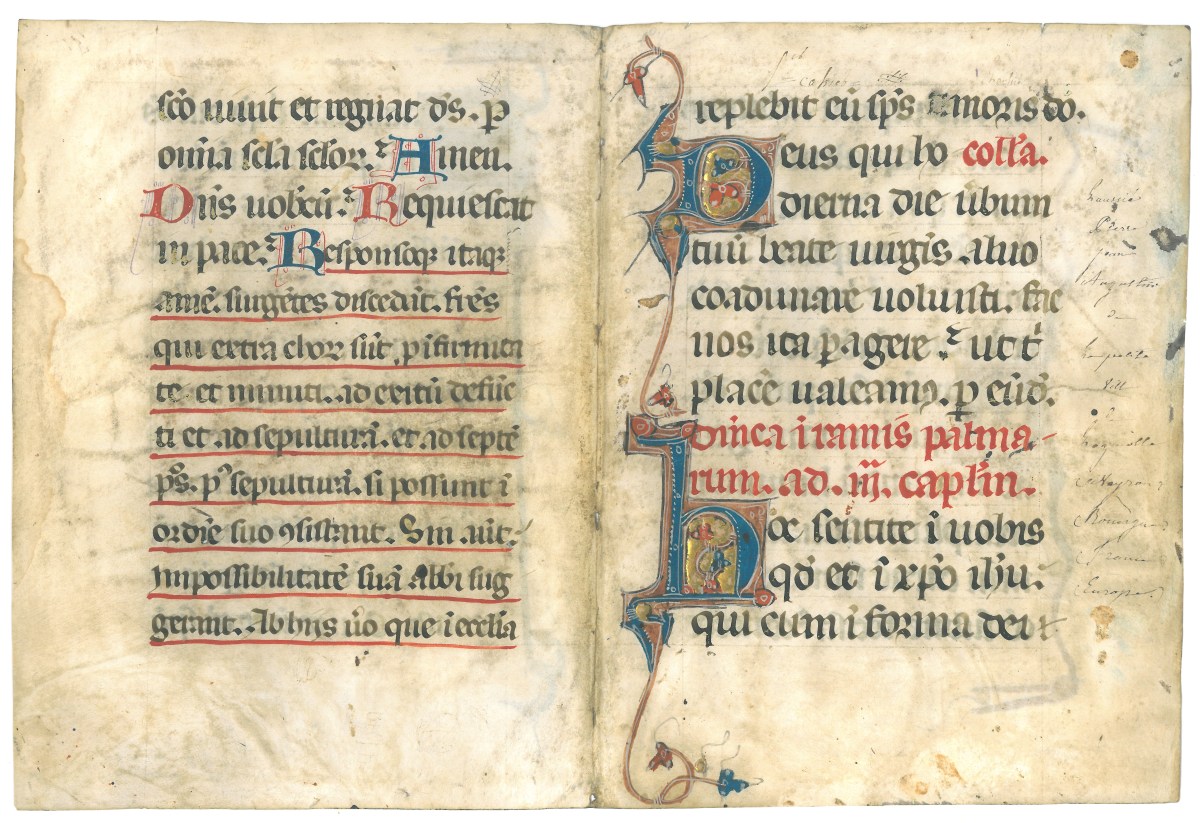 sco uiuit et regnat ds. p
omia scla sclor. Amen.
Dns uobcu. Requiescat
in pace. Responsoq itaq
ame. surgetes discedut. fres
qui extra choru sut, p ifirmita
te et minuti. ad exitu defuc
ti et ad sepultura. et ad septe
ps. p sepultura. si possunt i
ordie suo 9sistant. Sin aut.
impossibilitate sua Abbi sug
gerant. Ab hijs uo que i ecclia
replebit eu sps timoris do.
Deus qui ho colla.
dierna die ubum
tuu beate uirgis aluo
coadunare uoluisti. fac
nos ita pagere. ut t
place ualeamus. p eud.
dnica i ramis palma-
rum. ad. iij. caplm.
Hoc sentite i uobis
qd et i xpo ihu.
qui cum i forma dei
cahier
Pierre
Augustin
de
ville
de
France
Europe